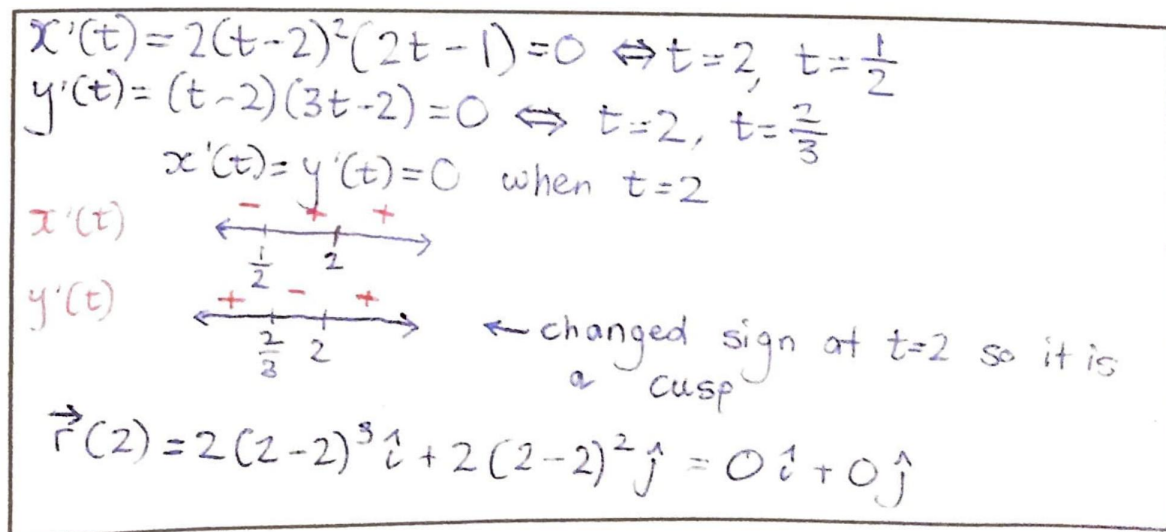 x'(t) = 2(t-2)²(2t-1) = 0 ⇔ t = 2, t = 1/2
y'(t) = (t-2)(3t-2) = 0 ⇔ t = 2, t = 2/3
x'(t) = y'(t) = 0 when t = 2
- + +
x'(t)
1/2 2
+ - +
y'(t)
2/3 2
← changed sign at t=2 so it is
a cusp
r⃗(2) = 2(2-2)³î + 2(2-2)²ĵ = 0î + 0ĵ